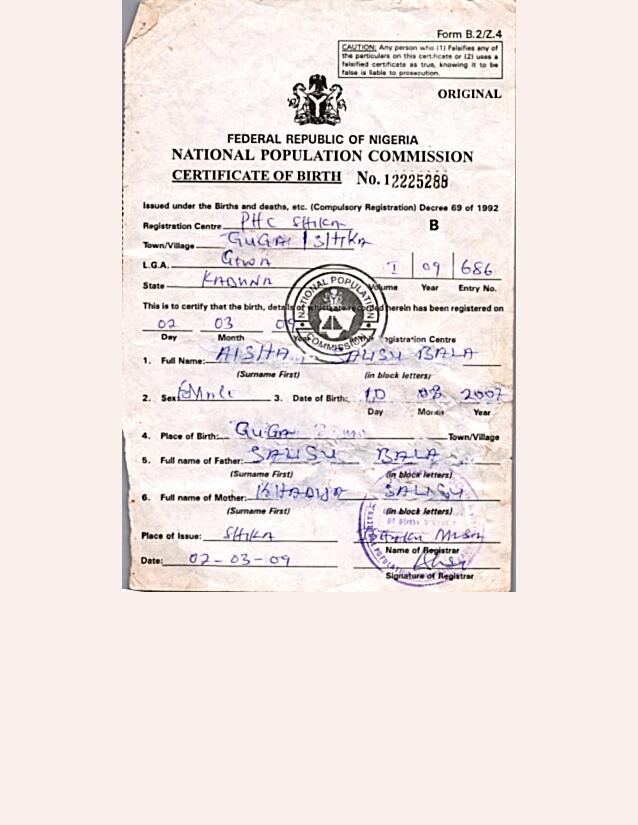 Form B.2/Z.4
CAUTION: Any person who (1) Falsifies any of
the particulars on this certificate or (2) uses a
falsified certificate as true, knowing it to be
false is liable to prosecution.
ORIGINAL
FEDERAL REPUBLIC OF NIGERIA
NATIONAL POPULATION COMMISSION
CERTIFICATE OF BIRTH No. 12225288
Issued under the Births and deaths, etc. (Compulsory Registration) Decree 69 of 1992
Registration Centre PHC SHIKA B
Town/Village GUGA SHIKA
L.G.A. GIWA I 09 686
State KADUNA Volume Year Entry No.
NATIONAL POPULATION COMMISSION
This is to certify that the birth, details of which are recorded herein has been registered on
02 03 09
Day Month Year Registration Centre
1. Full Name: AISHA SALISU BALA
(Surname First) (in block letters)
2. Sex: 3. Date of Birth: 10 08 2007
Day Month Year
4. Place of Birth: GUGA Town/Village
5. Full name of Father: SALISU BALA
(Surname First) (in block letters)
6. Full name of Mother: KHADIJA SALISU
(Surname First) (in block letters)
Place of Issue: SHIKA
Name of Registrar
Date: 02-03-09
Signature of Registrar